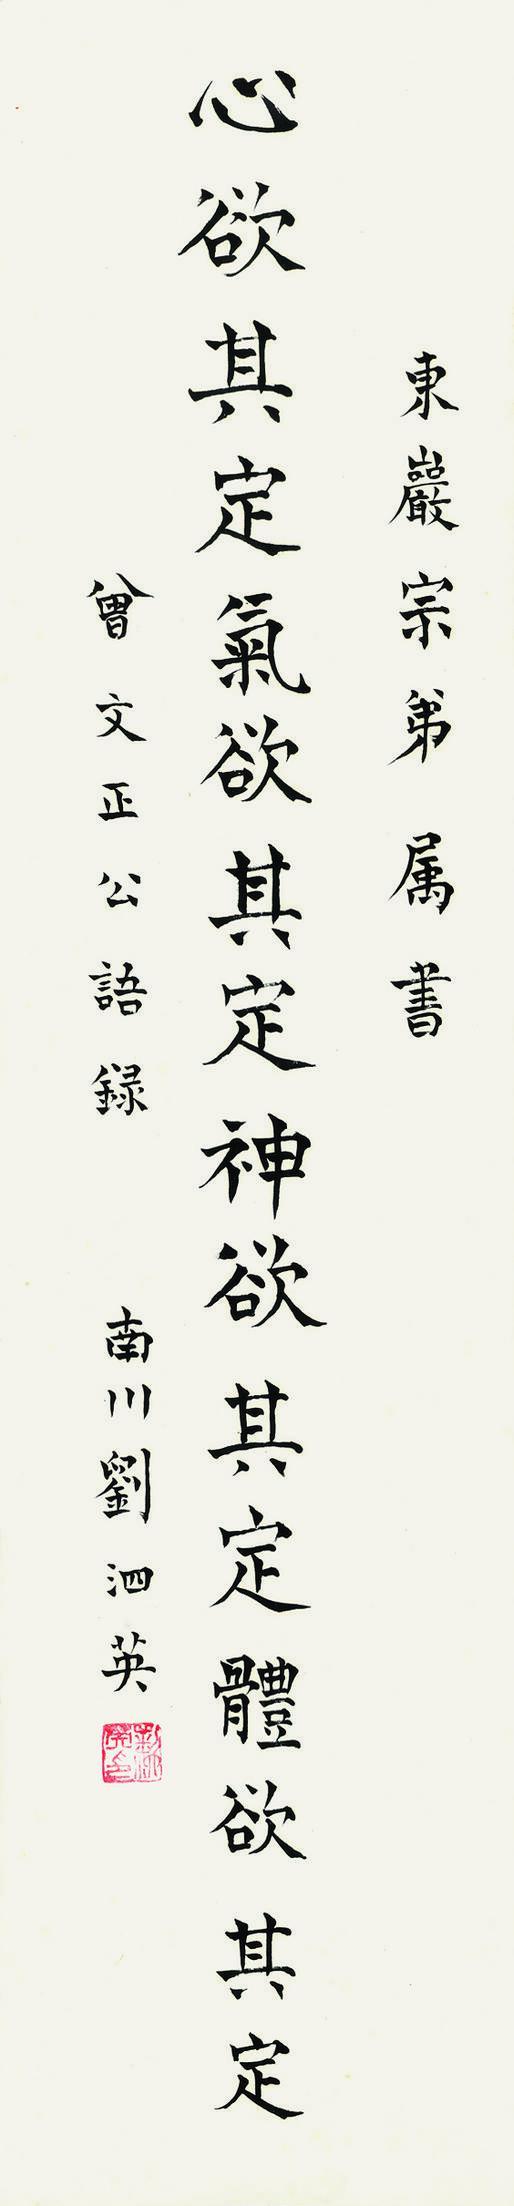 東巖宗弟属書
心欲其定氣欲其定神欲其定體欲其定
曾文正公語録
南川劉泗英